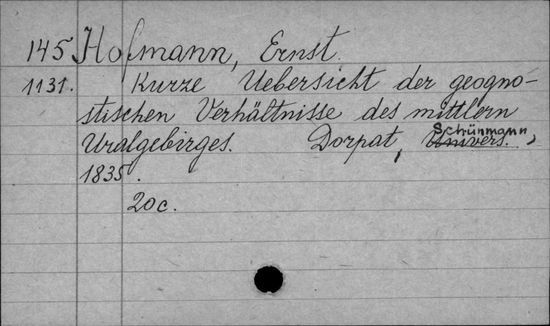 145 Hofmann, Ernst
1131. Kurze Uebersicht der geogno-
stischen Verhältnisse des mittlern
Uralgebirges. Dorpat, Univers. Schünmann,
1835.
20c.